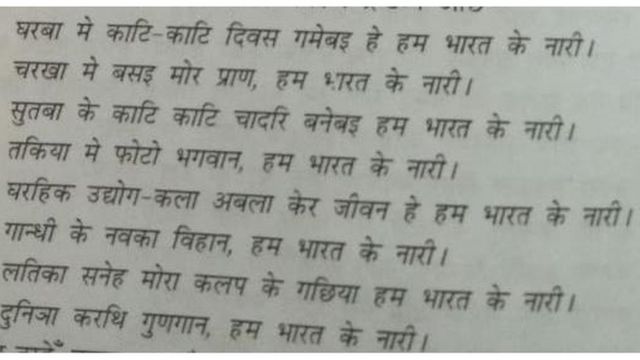 घरबा मे काटि-काटि दिवस गमेबइ हे हम भारत के नारी।
चरखा मे बसइ मोर प्राण, हम भारत के नारी।
सुतबा के काटि काटि चादरि बनेबइ हम भारत के नारी।
तकिया मे फोटो भगवान, हम भारत के नारी।
घरहिक उद्योग-कला अबला केर जीवन हे हम भारत के नारी।
गान्धी के नवका विहान, हम भारत के नारी।
लतिका सनेह मोरा कलप के गछिया हम भारत के नारी।
दुनिञा करथि गुणगान, हम भारत के नारी।